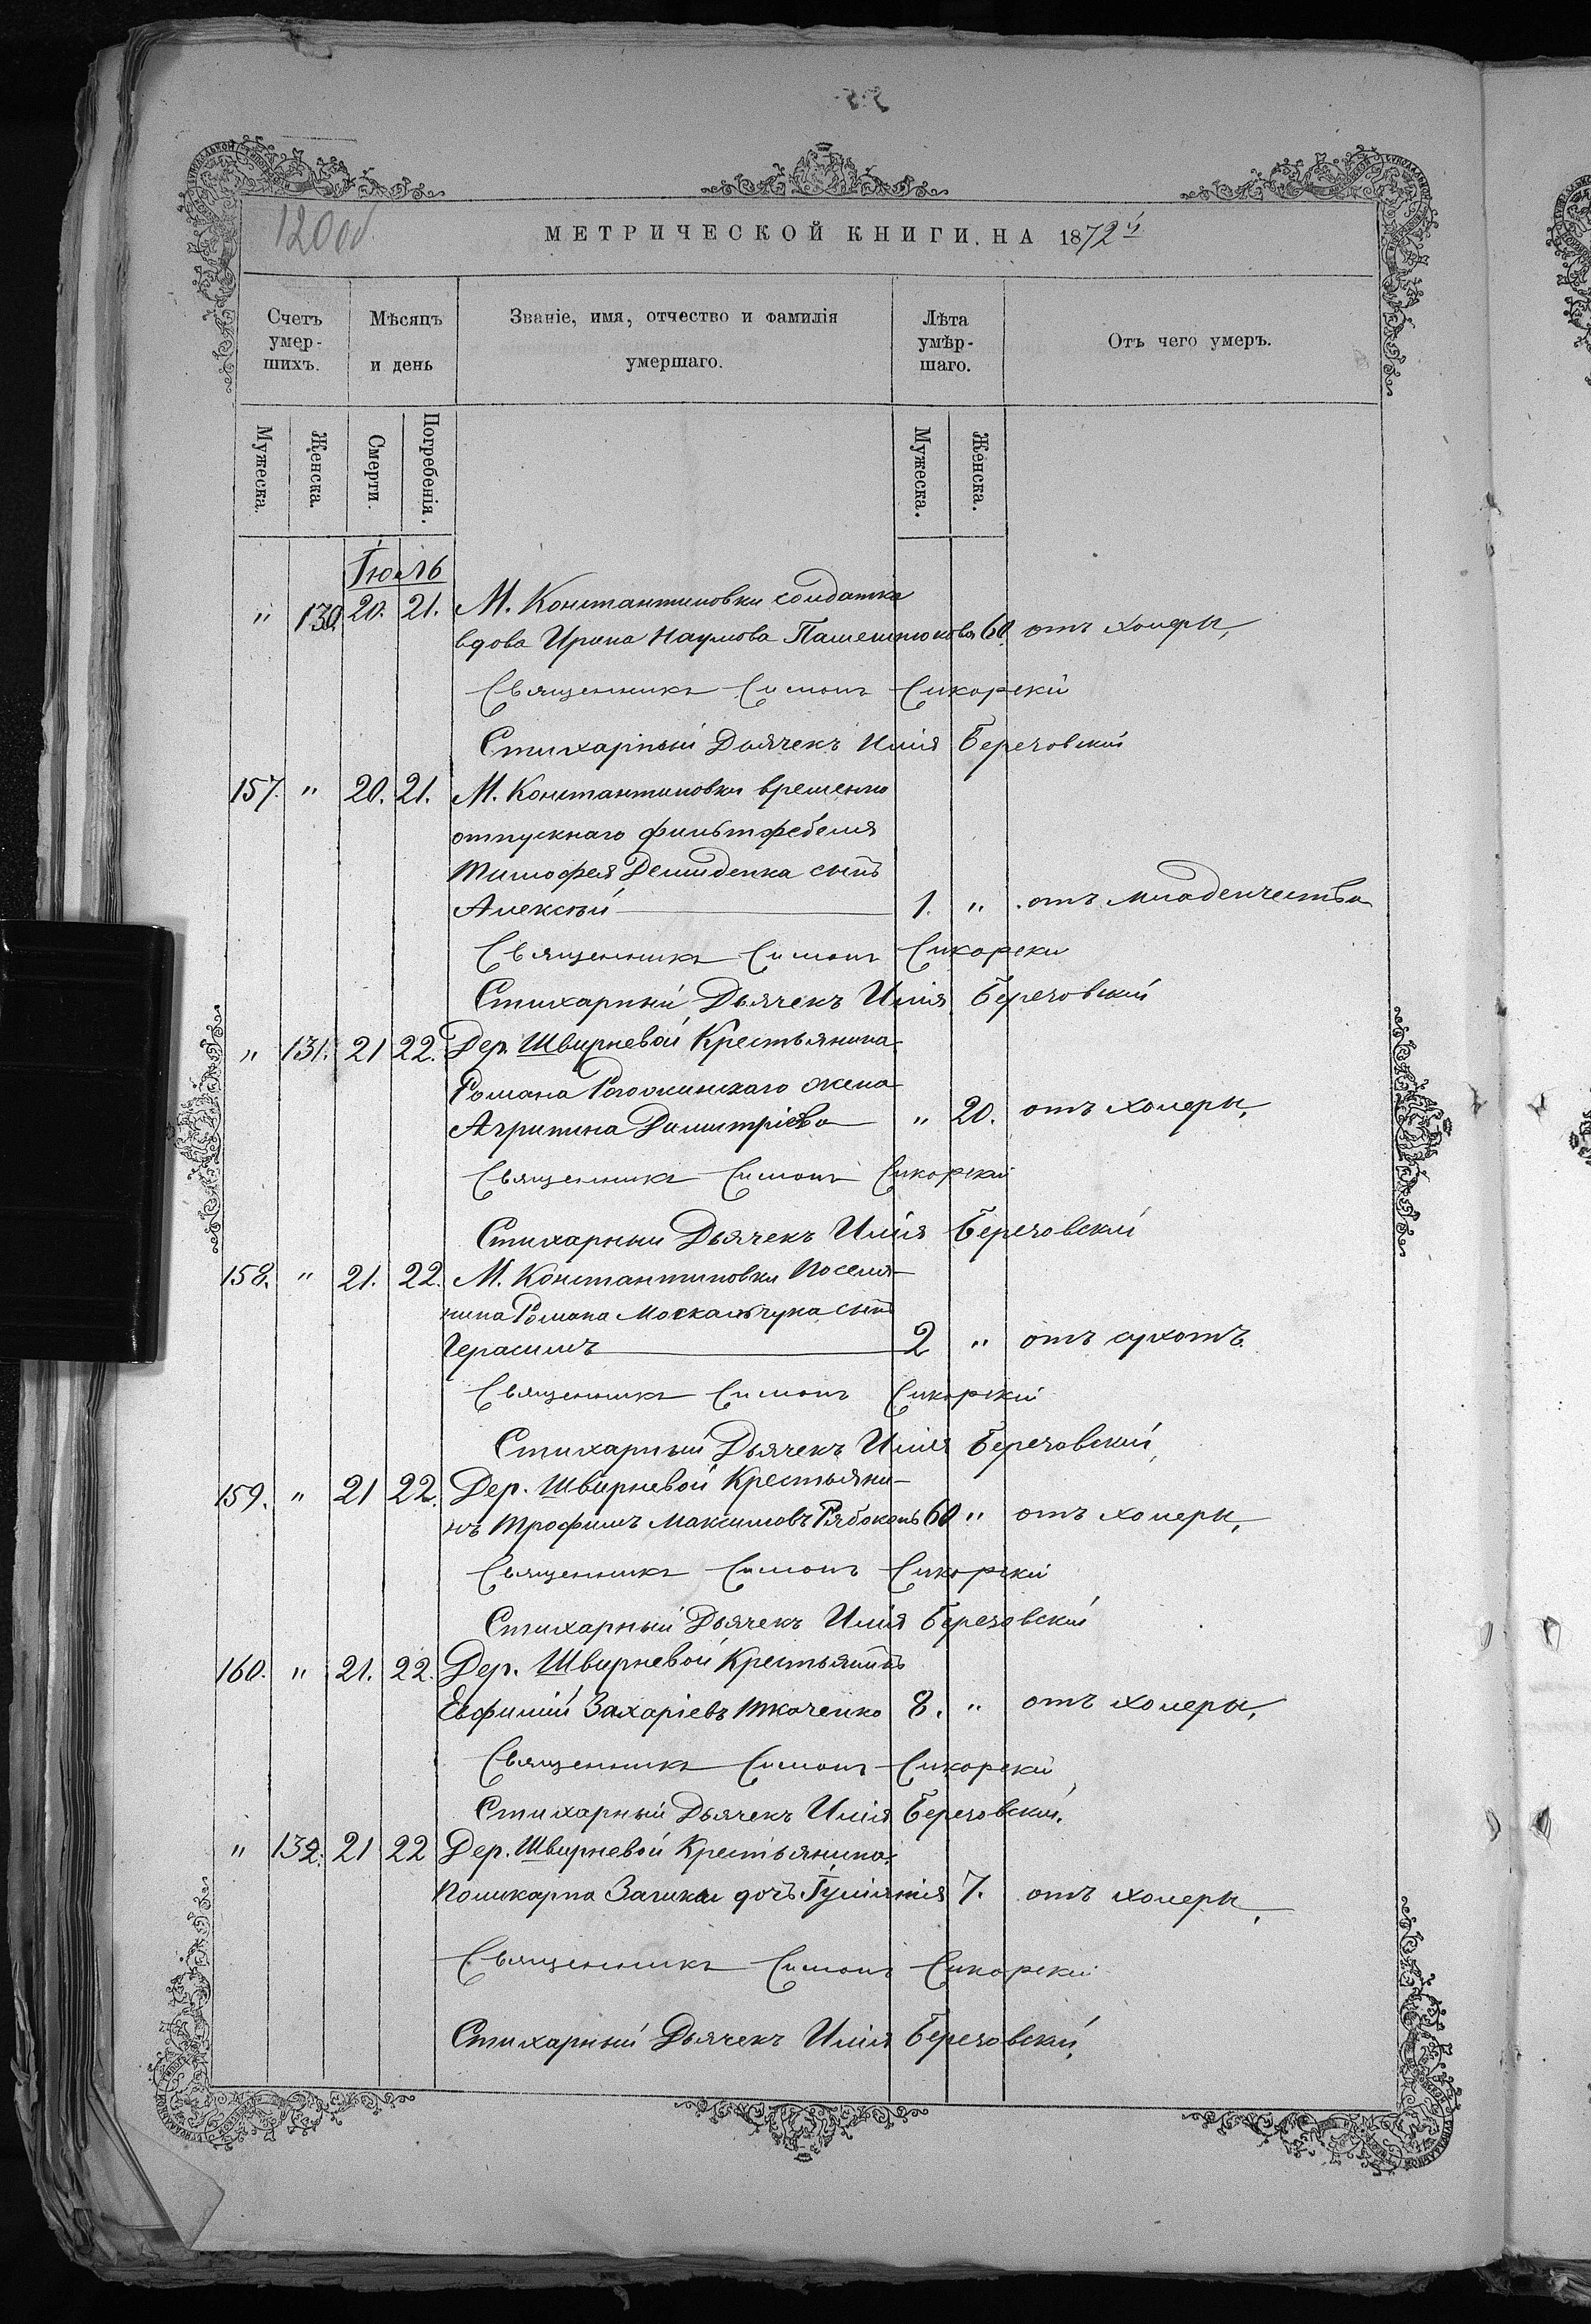 120 об
МЕТРИЧЕСКОЙ КНИГИ НА 1872й
Счетъ умер-шихъ.
Мѣсяцъ и день
Званіе, имя, отчество и фамилія умершаго.
Лѣта умѣр-шаго.
Отъ чего умеръ.
Мужеска.
Женска.
Смерти.
Погребенія.
Мужеска.
Женска.
Іюль
" 130. 20. 21. М. Константиновки солдатка
вдова Ирина Наумова 60. отъ холеры,
Священникъ Симонъ Сикорскій
Стихарный Дьячекъ Илія Березовскій
157. " 20. 21. М. Константиновки временно
отпускнаго фильтфебеля
Тимофея Демиденка сынъ
Алексѣй 1. " отъ младенчества
Священникъ Симонъ Сикорскій
Стихарный Дьячекъ Илія Березовскій
" 131. 21 22. Дер. Швирневой Крестьянина
Романа жена
Агрипина Димитріева " 20. отъ холеры,
Священникъ Симонъ Сикорскій
Стихарный Дьячекъ Илія Березовскій
158. " 21. 22. М. Константиновки Поселя-
нина Романа Москальчука сынъ
Герасимъ 2 " отъ сухотъ.
Священникъ Симонъ Сикорскій
Стихарный Дьячекъ Илія Березовскій
159. " 21 22. Дер. Швирневой Крестьяни-
нъ Трофимъ Максимовъ Рябоконь 60 " отъ холеры,
Священникъ Симонъ Сикорскій
Стихарный Дьячекъ Илія Березовскій
160. " 21. 22. Дер. Швирневой Крестьянинъ
Евфимій Захаріевъ Ткаченко 8. " отъ холеры,
Священникъ Симонъ Сикорскій
Стихарный Дьячекъ Илія Березовскій.
" 132. 21 22 Дер. Швирневой Крестьянина
Поликарпа дочь Іуліянія 7. отъ холеры,
Священникъ Симонъ Сикорскій
Стихарный Дьячекъ Илія Березовскій.